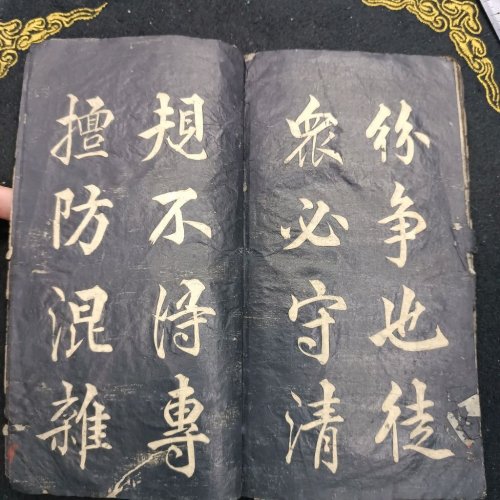 紛争也徒
衆必守清
規不得專
擅防混雜